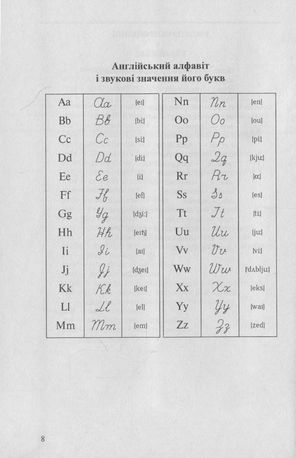 Англійський алфавіт
і звукові значення його букв
Aa Aa [ei]
Bb Bb [bi:]
Cc Cc [si:]
Dd Dd [di:]
Ee Ee [i:]
Ff Ff [ef]
Gg Gg [dʒi:]
Hh Hh [eitʃ]
Ii Ii [ai]
Jj Jj [dʒei]
Kk Kk [kei]
Ll Ll [el]
Mm Mm [em]
Nn Nn [en]
Oo Oo [ou]
Pp Pp [pi:]
Qq Qq [kju:]
Rr Rr [ɑ:]
Ss Ss [es]
Tt Tt [ti:]
Uu Uu [ju:]
Vv Vv [vi:]
Ww Ww [dʌblju:]
Xx Xx [eks]
Yy Yy [wai]
Zz Zz [zed]
8